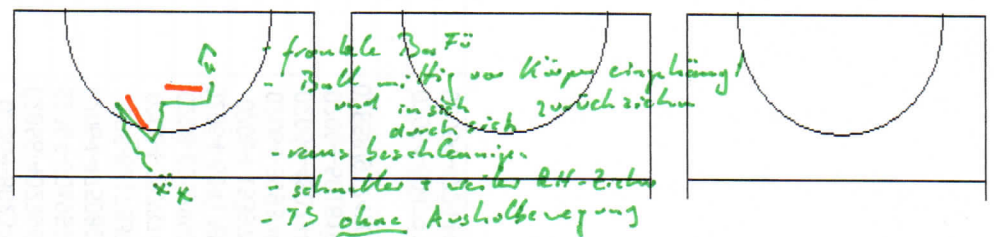 - frontale BaFü
- Ball mittig vor Körper eingehängt
und in sich zurückziehen
durch sich
- raus beschleunigen
- schneller + weiter RH-Zieher
- TS ohne Ausholbewegung
x x